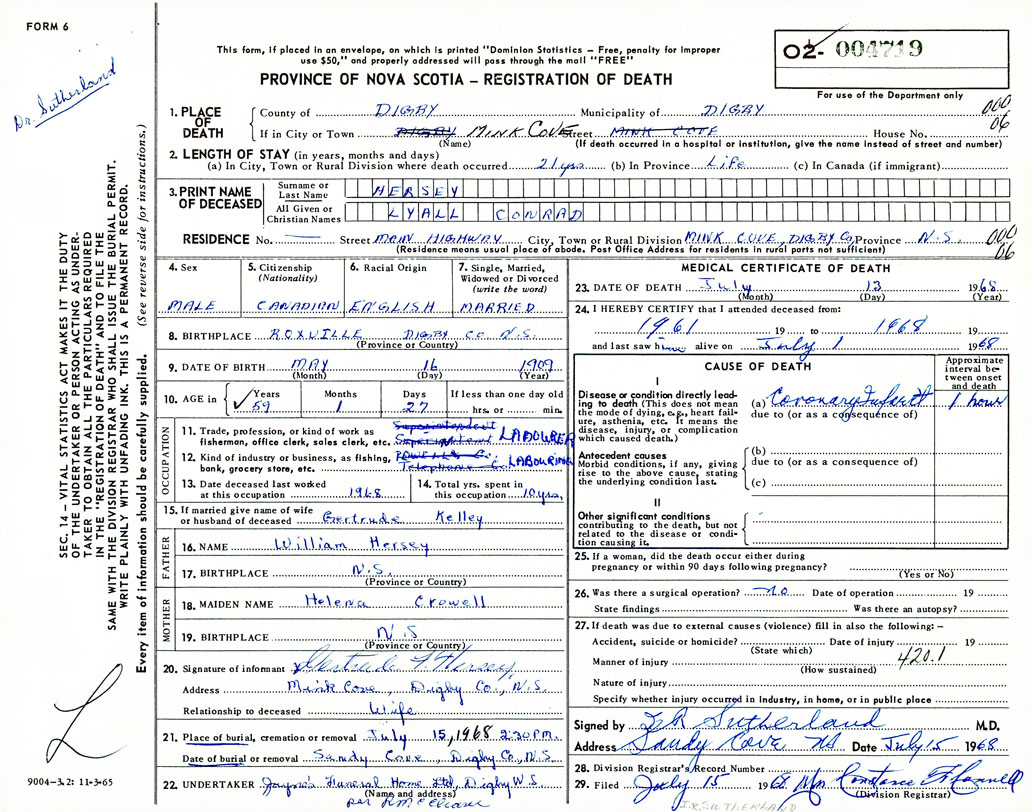 FORM 6
Dr. Sutherland
This form, if placed in an envelope, on which is printed "Dominion Statistics – Free, penalty for improper
use $50," and properly addressed will pass through the mail "FREE"
PROVINCE OF NOVA SCOTIA – REGISTRATION OF DEATH
02- 004719
For use of the Department only
1. PLACE OF DEATH County of DIGBY Municipality of DIGBY 000
If in City or Town DIGBY MINK COVE Street MINK COVE House No. 06
(Name) (If death occurred in a hospital or institution, give the name instead of street and number)
2. LENGTH OF STAY (in years, months and days)
(a) In City, Town or Rural Division where death occurred 21 yrs. (b) In Province Life (c) In Canada (if immigrant)
3. PRINT NAME OF DECEASED Surname or Last Name HERSEY
All Given or Christian Names LYALL CONRAD
RESIDENCE No. — Street MAIN HIGHWAY City, Town or Rural Division MINK COVE, DIGBY Co, Province N.S. 000
(Residence means usual place of abode. Post Office Address for residents in rural parts not sufficient) 06
4. Sex MALE
5. Citizenship (Nationality) CANADIAN
6. Racial Origin ENGLISH
7. Single, Married, Widowed or Divorced (write the word) MARRIED
8. BIRTHPLACE ROXVILLE DIGBY Co N.S.
(Province or Country)
9. DATE OF BIRTH MAY 16 1909
(Month) (Day) (Year)
10. AGE in Years Months Days If less than one day old
✓ 59 1 27 hrs. or min.
OCCUPATION
11. Trade, profession, or kind of work as fisherman, office clerk, sales clerk, etc. Superintendent Superintendent LABOURER
12. Kind of industry or business, as fishing, bank, grocery store, etc. Telephone Co. LABOURING
13. Date deceased last worked at this occupation 1968
14. Total yrs. spent in this occupation 10 yrs.
15. If married give name of wife or husband of deceased Gertrude Kelley
FATHER
16. NAME William Hersey
17. BIRTHPLACE N.S.
(Province or Country)
MOTHER
18. MAIDEN NAME Helena Crowell
19. BIRTHPLACE N.S
(Province or Country)
20. Signature of informant x Gertrude F Hersey,
Address Mink Cove, Digby Co., N.S.
Relationship to deceased Wife
21. Place of burial, cremation or removal July 15, 1968 2:30 P.M.
Date of burial or removal Sandy Cove, Digby Co., N.S.
22. UNDERTAKER Jayne's Funeral Home Ltd, Digby N S
(Name and address)
per
MEDICAL CERTIFICATE OF DEATH
23. DATE OF DEATH July 13 1968
(Month) (Day) (Year)
24. I HEREBY CERTIFY that I attended deceased from:
1961 19 to 1968 19
and last saw him alive on July 1 1968
CAUSE OF DEATH
Approximate interval between onset and death
I
Disease or condition directly leading to death (This does not mean the mode of dying, e.g., heart failure, asthenia, etc. It means the disease, injury, or complication which caused death.)
(a) Coronary Infarct 1 hour
due to (or as a consequence of)
Antecedent causes
Morbid conditions, if any, giving rise to the above cause, stating the underlying condition last.
(b)
due to (or as a consequence of)
(c)
II
Other significant conditions
contributing to the death, but not related to the disease or condition causing it.
25. If a woman, did the death occur either during pregnancy or within 90 days following pregnancy?
(Yes or No)
26. Was there a surgical operation? no Date of operation 19
State findings Was there an autopsy?
27. If death was due to external causes (violence) fill in also the following: –
Accident, suicide or homicide? Date of injury 19
(State which) 420.1
Manner of injury
(How sustained)
Nature of injury
Specify whether injury occurred in industry, in home, or in public place
Signed by Sutherland M.D.
Address Sandy Cove NS Date July 15 1968
28. Division Registrar's Record Number
29. Filed July 15 1968 Mrs Constance
(Division Registrar)
J.R. SUTHERLAND
SEC. 14 – VITAL STATISTICS ACT MAKES IT THE DUTY
OF THE UNDERTAKER OR PERSON ACTING AS UNDER-
TAKER TO OBTAIN ALL THE PARTICULARS REQUIRED
IN THE "REGISTRATION OF DEATH" AND TO FILE THE
SAME WITH THE DIVISION REGISTRAR WHO SHALL ISSUE THE BURIAL PERMIT.
WRITE PLAINLY WITH UNFADING INK. THIS IS A PERMANENT RECORD.
Every item of information should be carefully supplied. (See reverse side for instructions.)
L
9004-3.2: 11-3-65